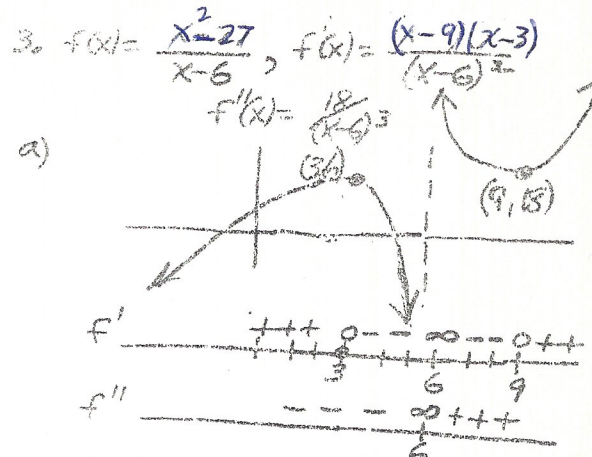 3. f(x) = x²-27 / x-6, f'(x) = (x-9)(x-3) / (x-6)²
f''(x) = 18 / (x-6)³
a)
(3,6)
(9,18)
f' +++ 0 -- ∞ -- 0 ++
3 6 9
f'' --- ∞ +++
6